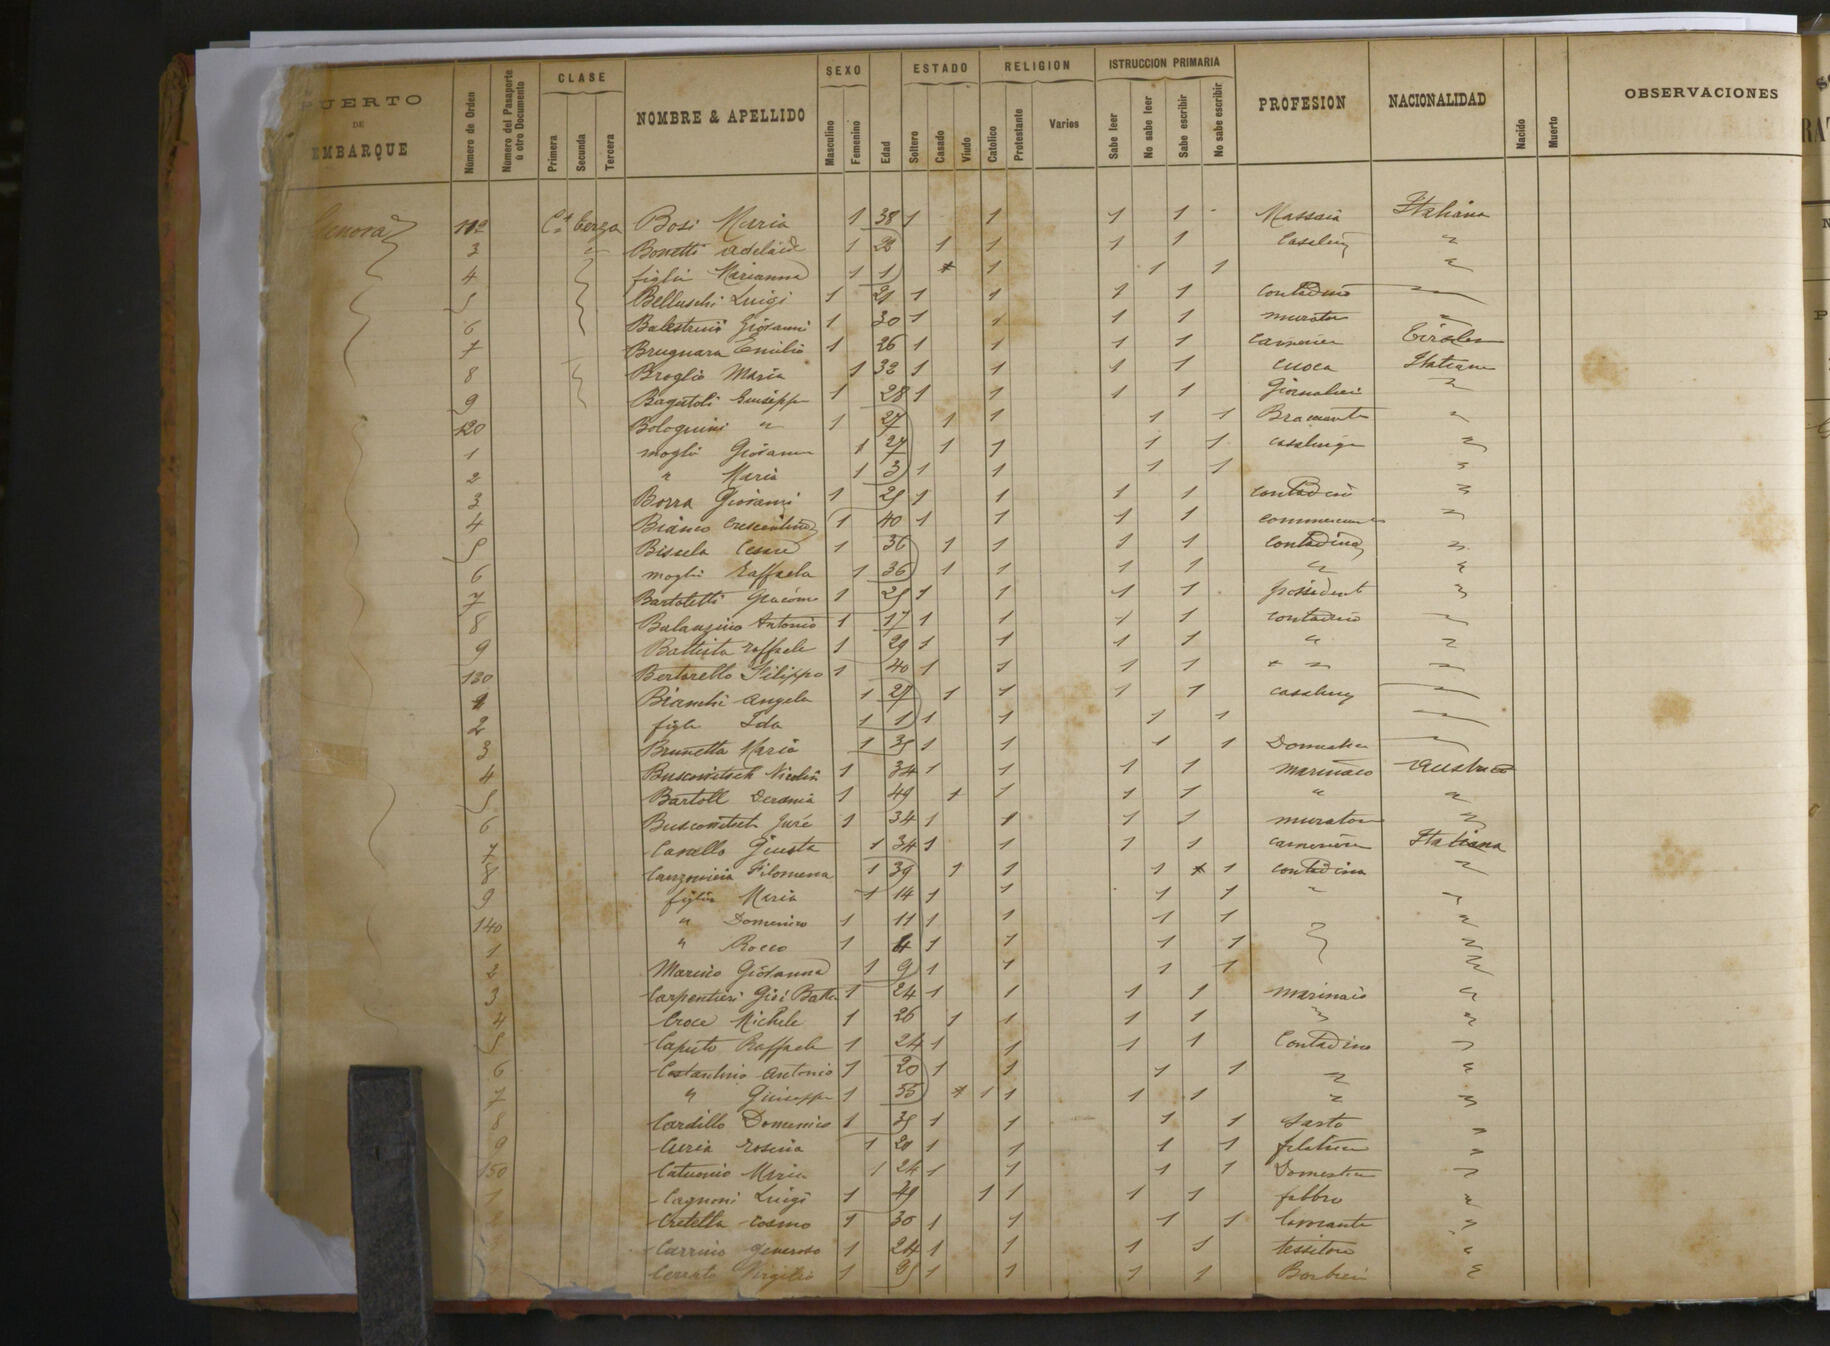 PUERTO DE EMBARQUE Número de Orden Número del Pasaporte ù otro Documento CLASE Primera Secunda Tercera NOMBRE & APELLIDO SEXO Masculino Femenino Edad ESTADO Soltero Casado Viudo RELIGION Catolico Protestante Varios ISTRUCCION PRIMARIA Sabe leer No sabe leer Sabe escribir No sabe escribir PROFESION NACIONALIDAD Nacido Muerto OBSERVACIONES
Genova 112 Cª terza Bosi Maria 1 38 1 1 1 1 Massaia Italiana
3 " Bonetti Adelaide 1 1 1 1 1 Casaling "
4 figlia Marianna 1 1 1 1 1 "
5 Belluschi Luigi 1 21 1 1 1 1 contadino "
6 Balestrini Giovanni 1 30 1 1 1 1 murator "
7 Brugnara Emilio 1 26 1 1 1 1
8 Broglio Maria 1 32 1 1 1 1 cuoca Italiana
9 Giuseppe 1 28 1 1 1 1 Giornalier "
120 Bolognini " 1 27 1 1 1 1 Bracciante "
1 moglie Giovanna 1 27 1 1 1 1 casalinga "
2 " Maria 1 3 1 1 1 1 "
3 Borra Giovanni 1 25 1 1 1 1 contadino "
4 Bianco Crescentino 1 40 1 1 1 1 "
5 Cesare 1 36 1 1 1 1 contadino "
6 moglie Raffaela 1 36 1 1 1 1 " "
7 Bartoletti Giacomo 1 25 1 1 1 1 possidente "
8 Balanzino Antonio 1 17 1 1 1 1 contadino "
9 Battista Raffaele 1 29 1 1 1 1 " "
130 Bertorello Filippo 1 40 1 1 1 1 " "
1 Bianchi Angela 1 27 1 1 1 1 casaling "
2 figlia Ida 1 1 1 1 1 1 "
3 Brunetta Maria 1 35 1 1 1 1 Domestica "
4 Busconitsch 1 34 1 1 1 1 marinaio
5 Bartoll 1 49 1 1 1 1 " "
6 Busconitsch Jure 1 34 1 1 1 1 murator "
7 Giusta 1 34 1 1 1 1 cameriera Italiana
8 Filomena 1 39 1 1 1 1 contadina "
9 figlia Maria 1 14 1 1 1 1 " "
140 " Domenico 1 11 1 1 1 1 "
1 " Rocco 1 1 1 1 1 "
2 Marino Giovanna 1 9 1 1 1 1 "
3 Carpentieri Gioi Batta 1 24 1 1 1 1 marinaio "
4 Croce Michele 1 26 1 1 1 1 " "
5 Caputo Raffaele 1 24 1 1 1 1 Contadino "
6 Costantino Antonio 1 20 1 1 1 1 " "
7 " Giuseppe 1 55 1 1 1 1 " "
8 Cardillo Domenico 1 35 1 1 1 1 Sarto "
9 Rosina 1 1 1 1 1 filatrice "
150 Catuonio Maria 1 24 1 1 1 1 Domestica "
1 Cagnoni Luigi 1 49 1 1 1 1 fabbro "
Cretella Cosmo 1 30 1 1 1 1 "
Carrino Generoso 1 24 1 1 1 1 tessitore "
Cerrato Virgilio 1 25 1 1 1 1 Barbier "